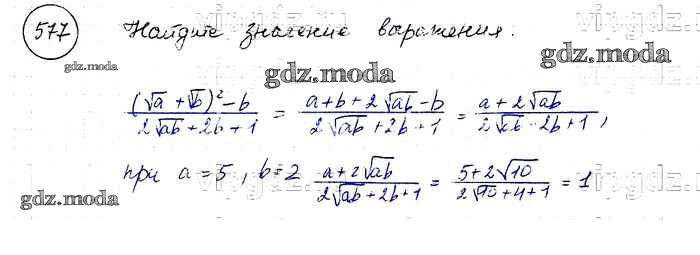 577 Найдите значение выражения.
gdz.moda
gdz.moda
gdz.moda
((√a + √b)² - b) / (2√ab + 2b + 1) = (a + b + 2√ab - b) / (2√ab + 2b + 1) = (a + 2√ab) / (2√ab - 2b + 1),
при a = 5, b = 2 (a + 2√ab) / (2√ab + 2b + 1) = (5 + 2√10) / (2√10 + 4 + 1) = 1
gdz.moda
gdz.moda